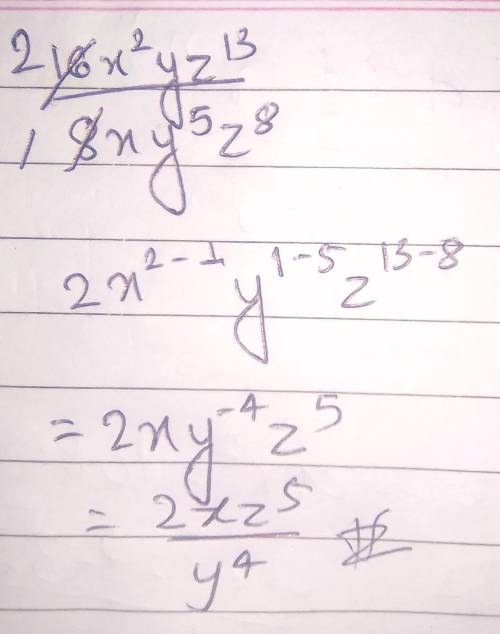 2 16x²yz¹³
1 8xy⁵z⁸
2x²⁻¹y¹⁻⁵z¹³⁻⁸
= 2xy⁻⁴z⁵
= 2xz⁵
y⁴